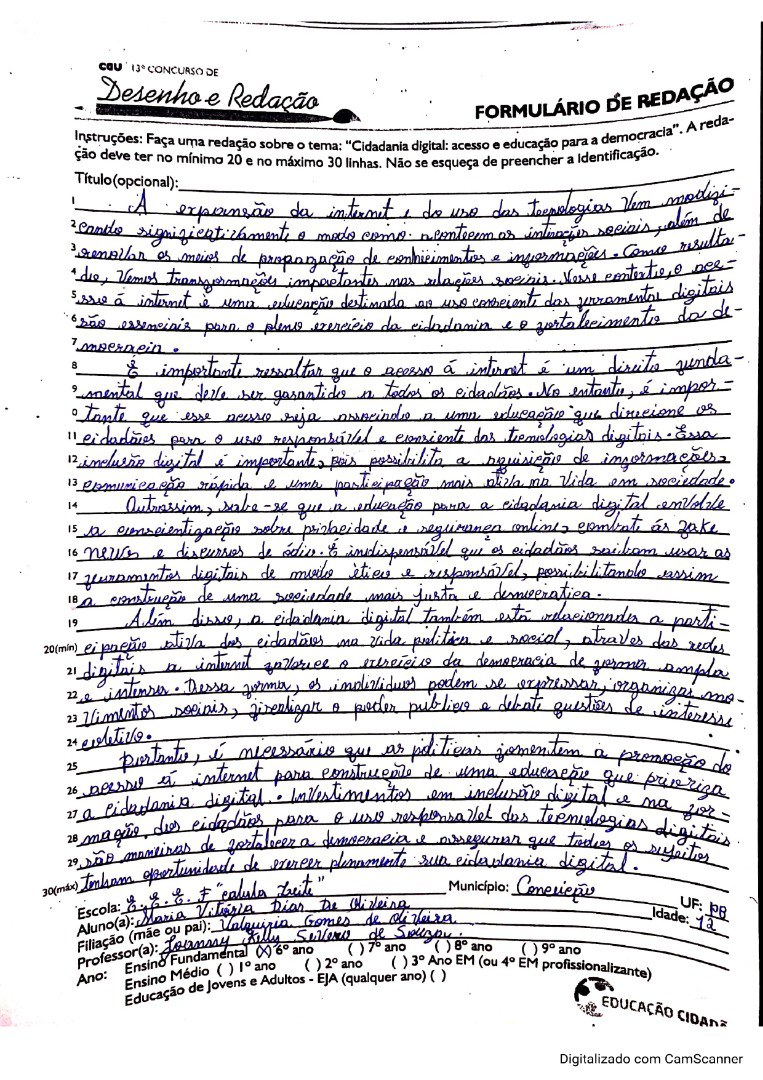 CGU 13º CONCURSO DE
Desenho e Redação
FORMULÁRIO DE REDAÇÃO
Instruções: Faça uma redação sobre o tema: "Cidadania digital: acesso e educação para a democracia". A reda-
ção deve ter no mínimo 20 e no máximo 30 linhas. Não se esqueça de preencher a Identificação.
Título(opcional):
1 A expansão da internet e do uso das tecnologias vem modifi-
2 cando significativamente o modo como acontecem as interações sociais, além de
3 renovar os meios de propagação de conhecimentos e informações. Como resulta-
4 do, vemos transformações importantes nas relações sociais. Nesse contexto, o ace-
5 sso á internet é uma educação destinada ao uso consciente das ferramentas digitais
6 são essenciais para o pleno exercício da cidadania e o fortalecimento da de-
7 mocracia.
8 É importante ressaltar que o acesso á internet é um direito funda-
9 mental que deve ser garantido a todos os cidadãos. No entanto, é impor-
0 tante que esse acesso seja associado a uma educação que direcione os
11 cidadãos para o uso responsável e consiente das tecnologias digitais. Essa
12 inclusão digital é importante, pois possibilita a aquisição de informações,
13 comunicação rápida e uma participação mais ativa na vida em sociedade.
14 Outrossim, sabe-se que a educação para a cidadania digital envolve
15 a conscientização sobre privacidade e segurança online, combate ás fake
16 news e discursos de ódio. É indispensável que os cidadãos saibam usar as
17 ferramentas digitais de muito ético e responsável, possibilitando assim
18 a construção de uma sociedade mais justa e democratica.
19 Além disso, a cidadania digital também está relacionados a parti-
20(mín) cipação ativa dos cidadãos na vida política e social, através das redes
21 digitais a internet favorece o exercício da democracia de forma ampla
22 e intensa. Dessa forma, os indivíduos podem se expressar, organizar mo-
23 vimentos sociais, fiscalizar o poder publico e debate questões de interesse
24 coletivo.
25 Portanto, é necessário que as politicas fomentem a promoção do
26 acesso á internet para construcção de uma educação que prioriza
27 a cidadania digital. Investimentos em inclusão digital e na for-
28 mação dos cidadãos para o uso responsável das tecnologias digitais
29 são maneiras de fortalecer a democracia e assegurar que todos os sujeitos
30(máx) tenham oportunidade de exercer plenamente sua cidadania digital.
Escola: E. E. E. F "calula Leite" Município: Conceição UF: PB
Aluno(a): Maria Vitória Dias De Oliveira Idade: 12
Filiação (mãe ou pai): Valquiria Gomes de oliveira
Professor(a): Joannsy Kelly Silverio de Souza
Ano: Ensino Fundamental (X) 6º ano ( ) 7º ano ( ) 8º ano ( ) 9º ano
Ensino Médio ( ) 1º ano ( ) 2º ano ( ) 3º Ano EM (ou 4º EM profissionalizante)
Educação de Jovens e Adultos - EJA (qualquer ano) ( )
EDUCAÇÃO CIDADÃ
Digitalizado com CamScanner